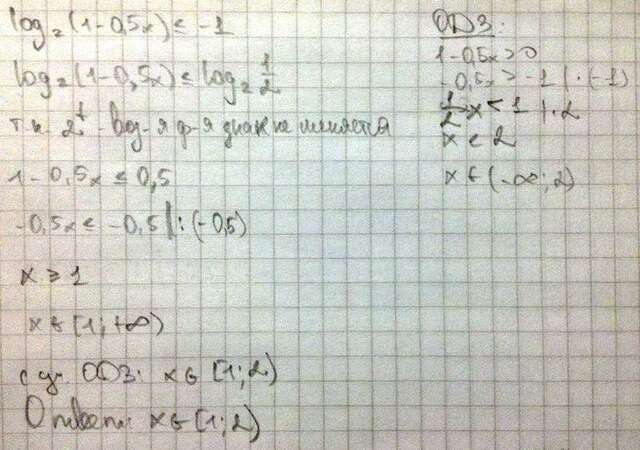 log₂(1-0,5x) ≤ -1
log₂(1-0,5x) ≤ log₂ 1/2
т.к. 2↑ - log-я ф-я знак не меняется
1-0,5x ≤ 0,5
-0,5x ≤ -0,5 | : (-0,5)
x ≥ 1
x ∈ [1; +∞)
с уч. ОДЗ: x ∈ [1; 2)
Ответ: x ∈ [1; 2)
ОДЗ:
1-0,5x > 0
-0,5x > -1 | · (-1)
1/2 x < 1 | · 2
x < 2
x ∈ (-∞; 2)